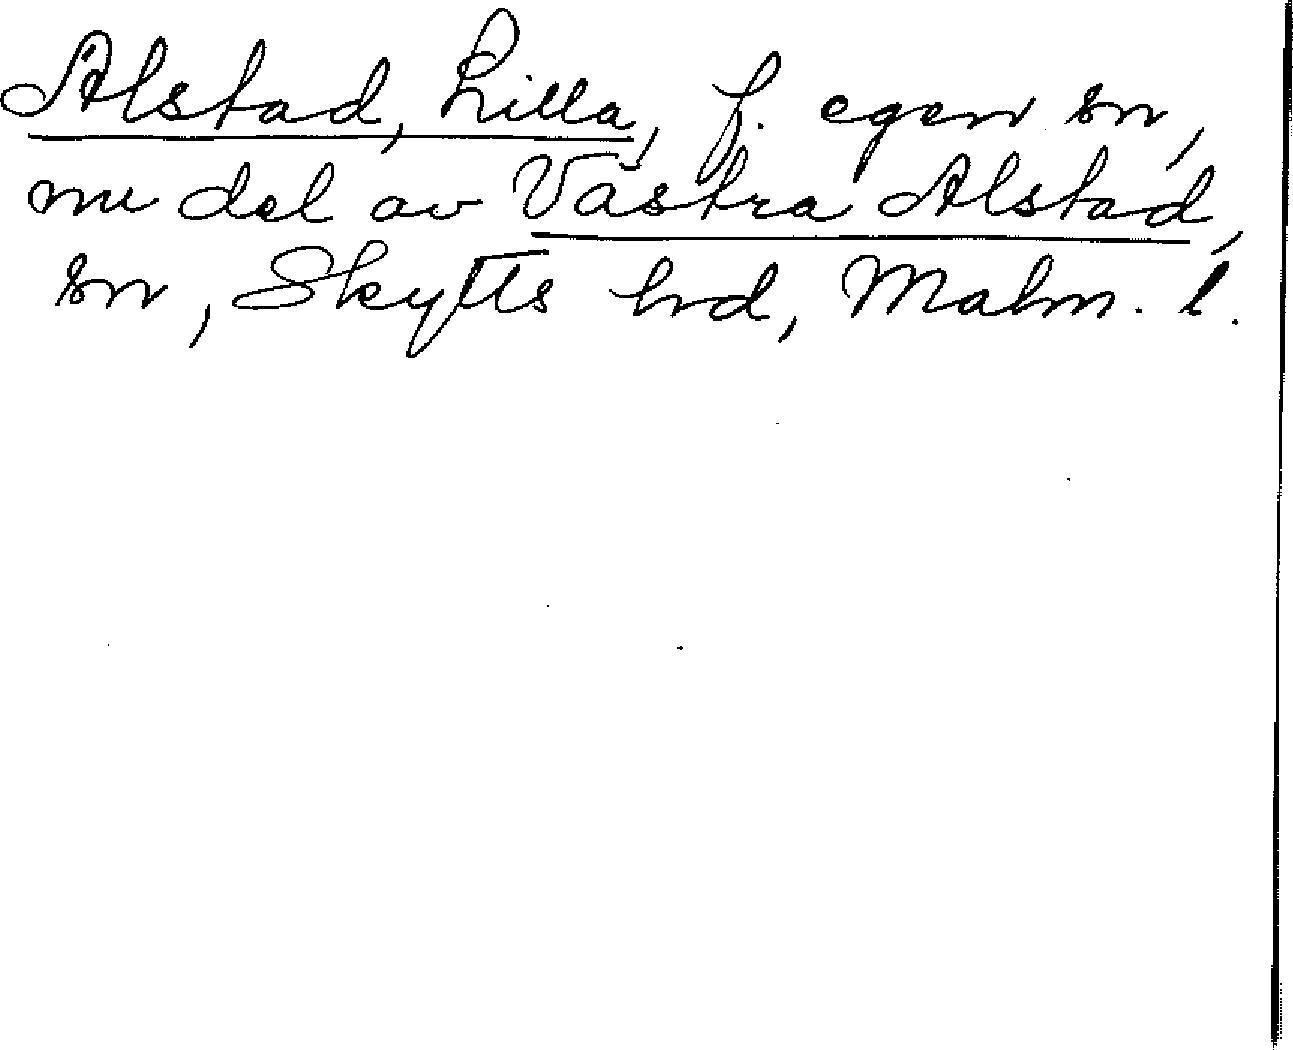 Alstad, Lilla, f. egen sn,
nu del av Västra Alstad,
sn, Skytts hd, Malm. l.